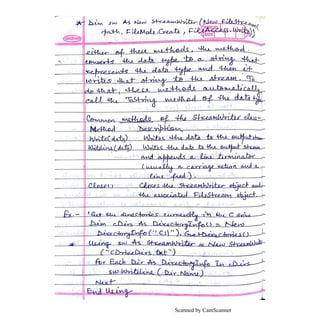 * Dim sw As New StreamWriter (New FileStream
(path, FileMode.Create, FileAccess.Write))
either of these methods, the method
converts the data type to a string that
represents the data type and then it
writes that string to the stream. To
do that, these methods automatically
call the ToString method of the data type
Common methods of the StreamWriter class-
Method Description
Write(data) Writes the data to the output stream
Writeline(data) Writes the data to the output stream
and appends a line terminator
(usually a carriage return and a
line feed).
Close() Closes the StreamWriter object and
the associated FileStream object.
Ex:- 'Get the directories currently in the C drive
Dim cDirs As DirectoryInfo() = New
DirectoryInfo("C:\").GetDirectories()
* Using sw As StreamWriter = New StreamWriter
("cDriveDirs.txt")
For Each Dir As DirectoryInfo in cDirs
sw.WriteLine (Dir.Name)
Next
End Using
Scanned by CamScanner